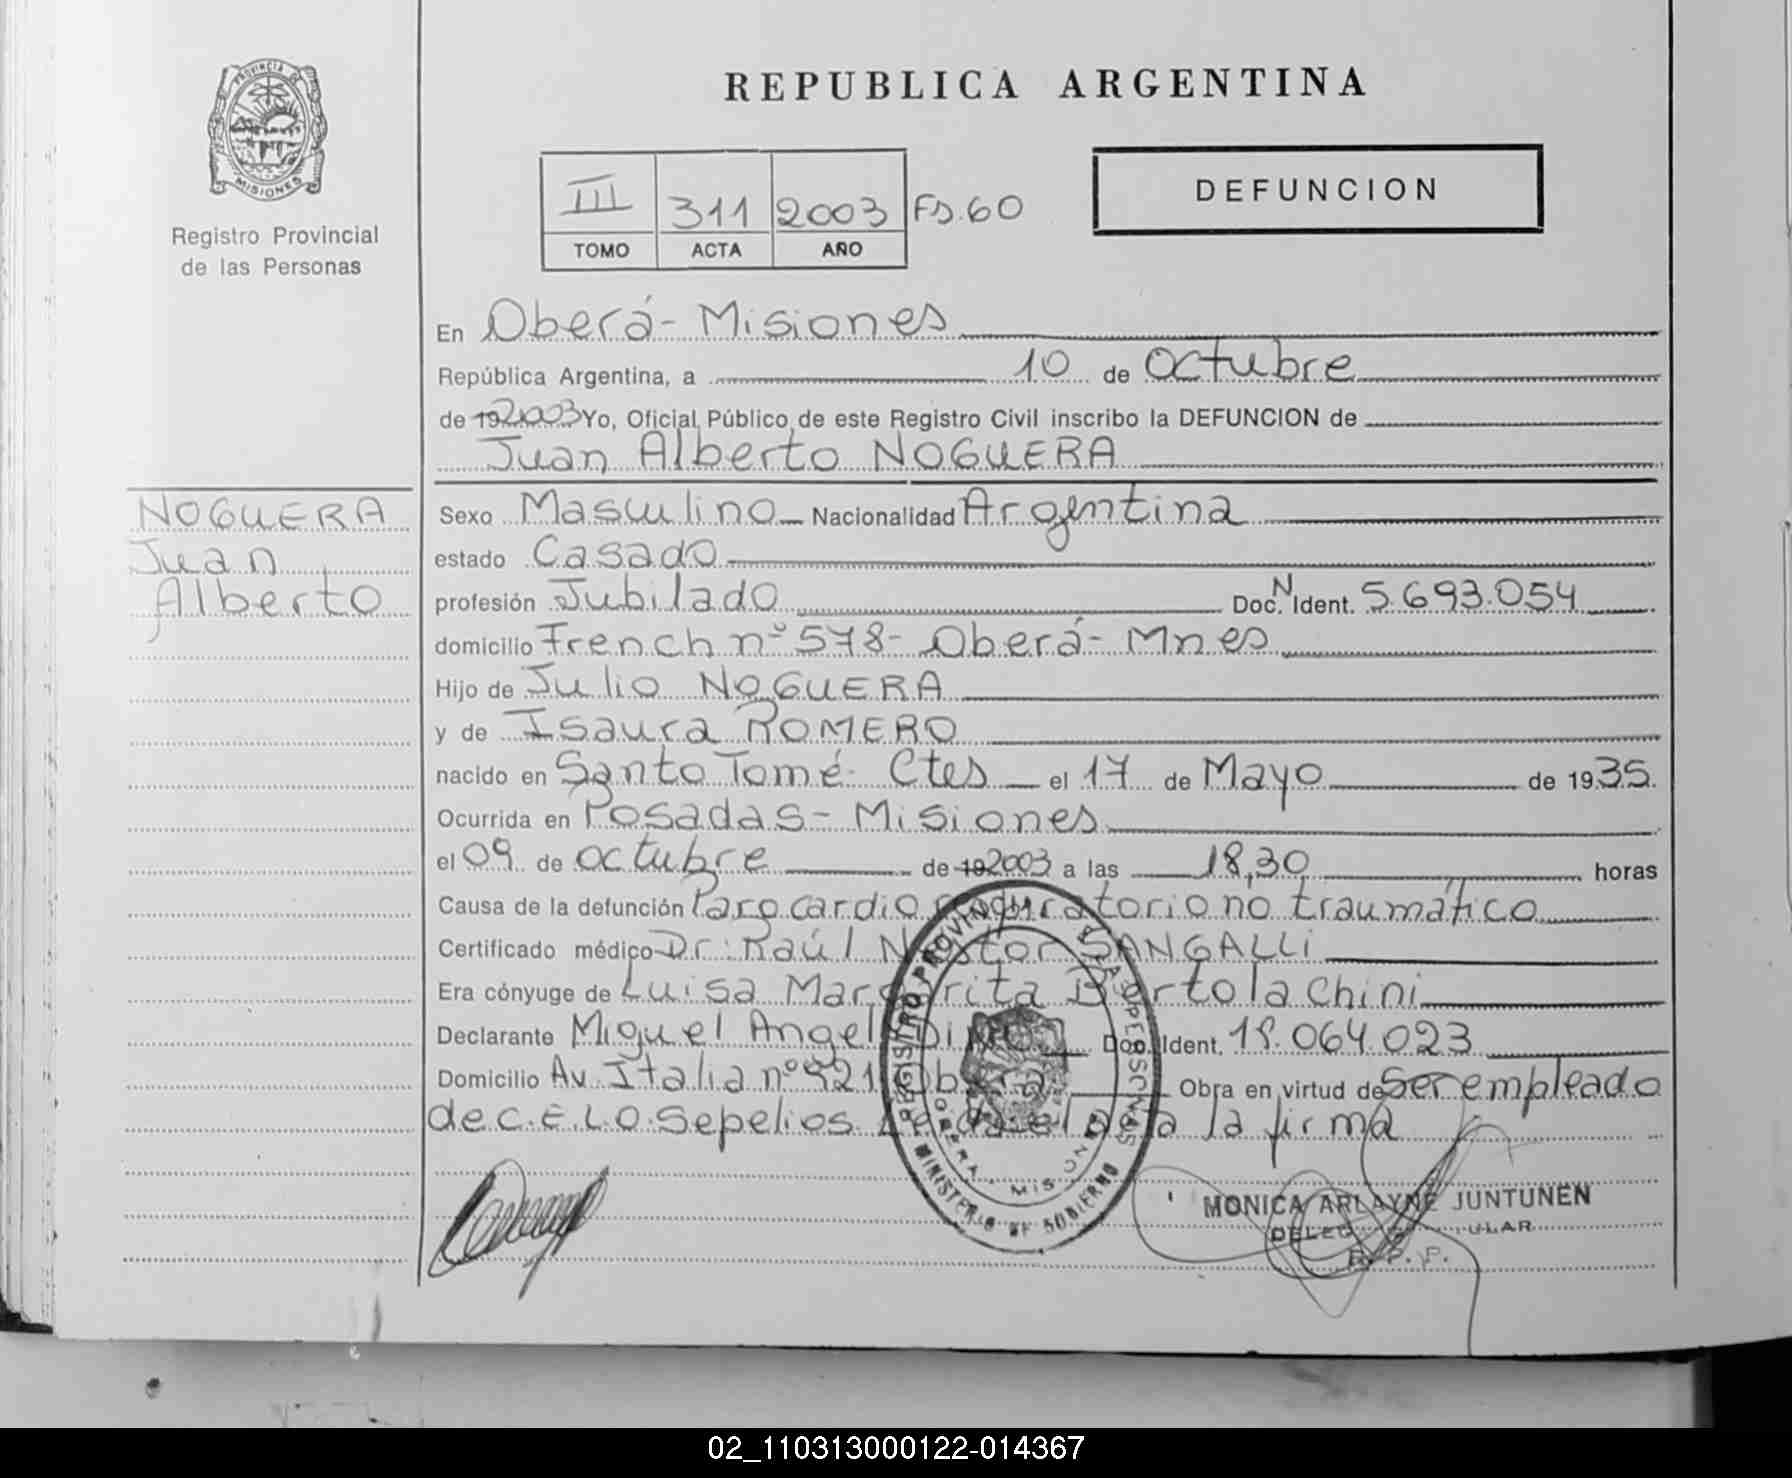 REPUBLICA ARGENTINA
PROVINCIA DE
MISIONES
Registro Provincial
de las Personas
DEFUNCION
III 311 2003 Fs. 60
TOMO ACTA AÑO
En Oberá - Misiones
República Argentina, a 10 de Octubre
de 19 2003 Yo, Oficial Público de este Registro Civil inscribo la DEFUNCION de
Juan Alberto NOGUERA
NOGUERA
Juan
Alberto
Sexo Masculino Nacionalidad Argentina
estado Casado
profesión Jubilado Doc. N Ident. 5.693.054
domicilio French nº 578 - Oberá - Mnes
Hijo de Julio NOGUERA
y de Isaura ROMERO
nacido en Santo Tomé - Ctes el 17 de Mayo de 1935.
Ocurrida en Posadas - Misiones
el 09 de octubre de 19 2003 a las 18,30 horas
Causa de la defunción Paro cardio respiratorio no traumático
Certificado médico Dr: Raúl Nestor SANGALLI
Era cónyuge de Luisa Margarita Bertolachini
Declarante Miguel Angel Doc. Ident. 18.064.023
Domicilio Av. Italia nº 421 Oberá Obra en virtud de Ser empleado
de C.E.L.O. Sepelios. la firma
REGISTRO PROVINCIAL DE LAS PERSONAS
OBERA - MISIONES
MINISTERIO DE GOBIERNO
MONICA ARLAYNE JUNTUNEN
R. P. P.
02_110313000122-014367